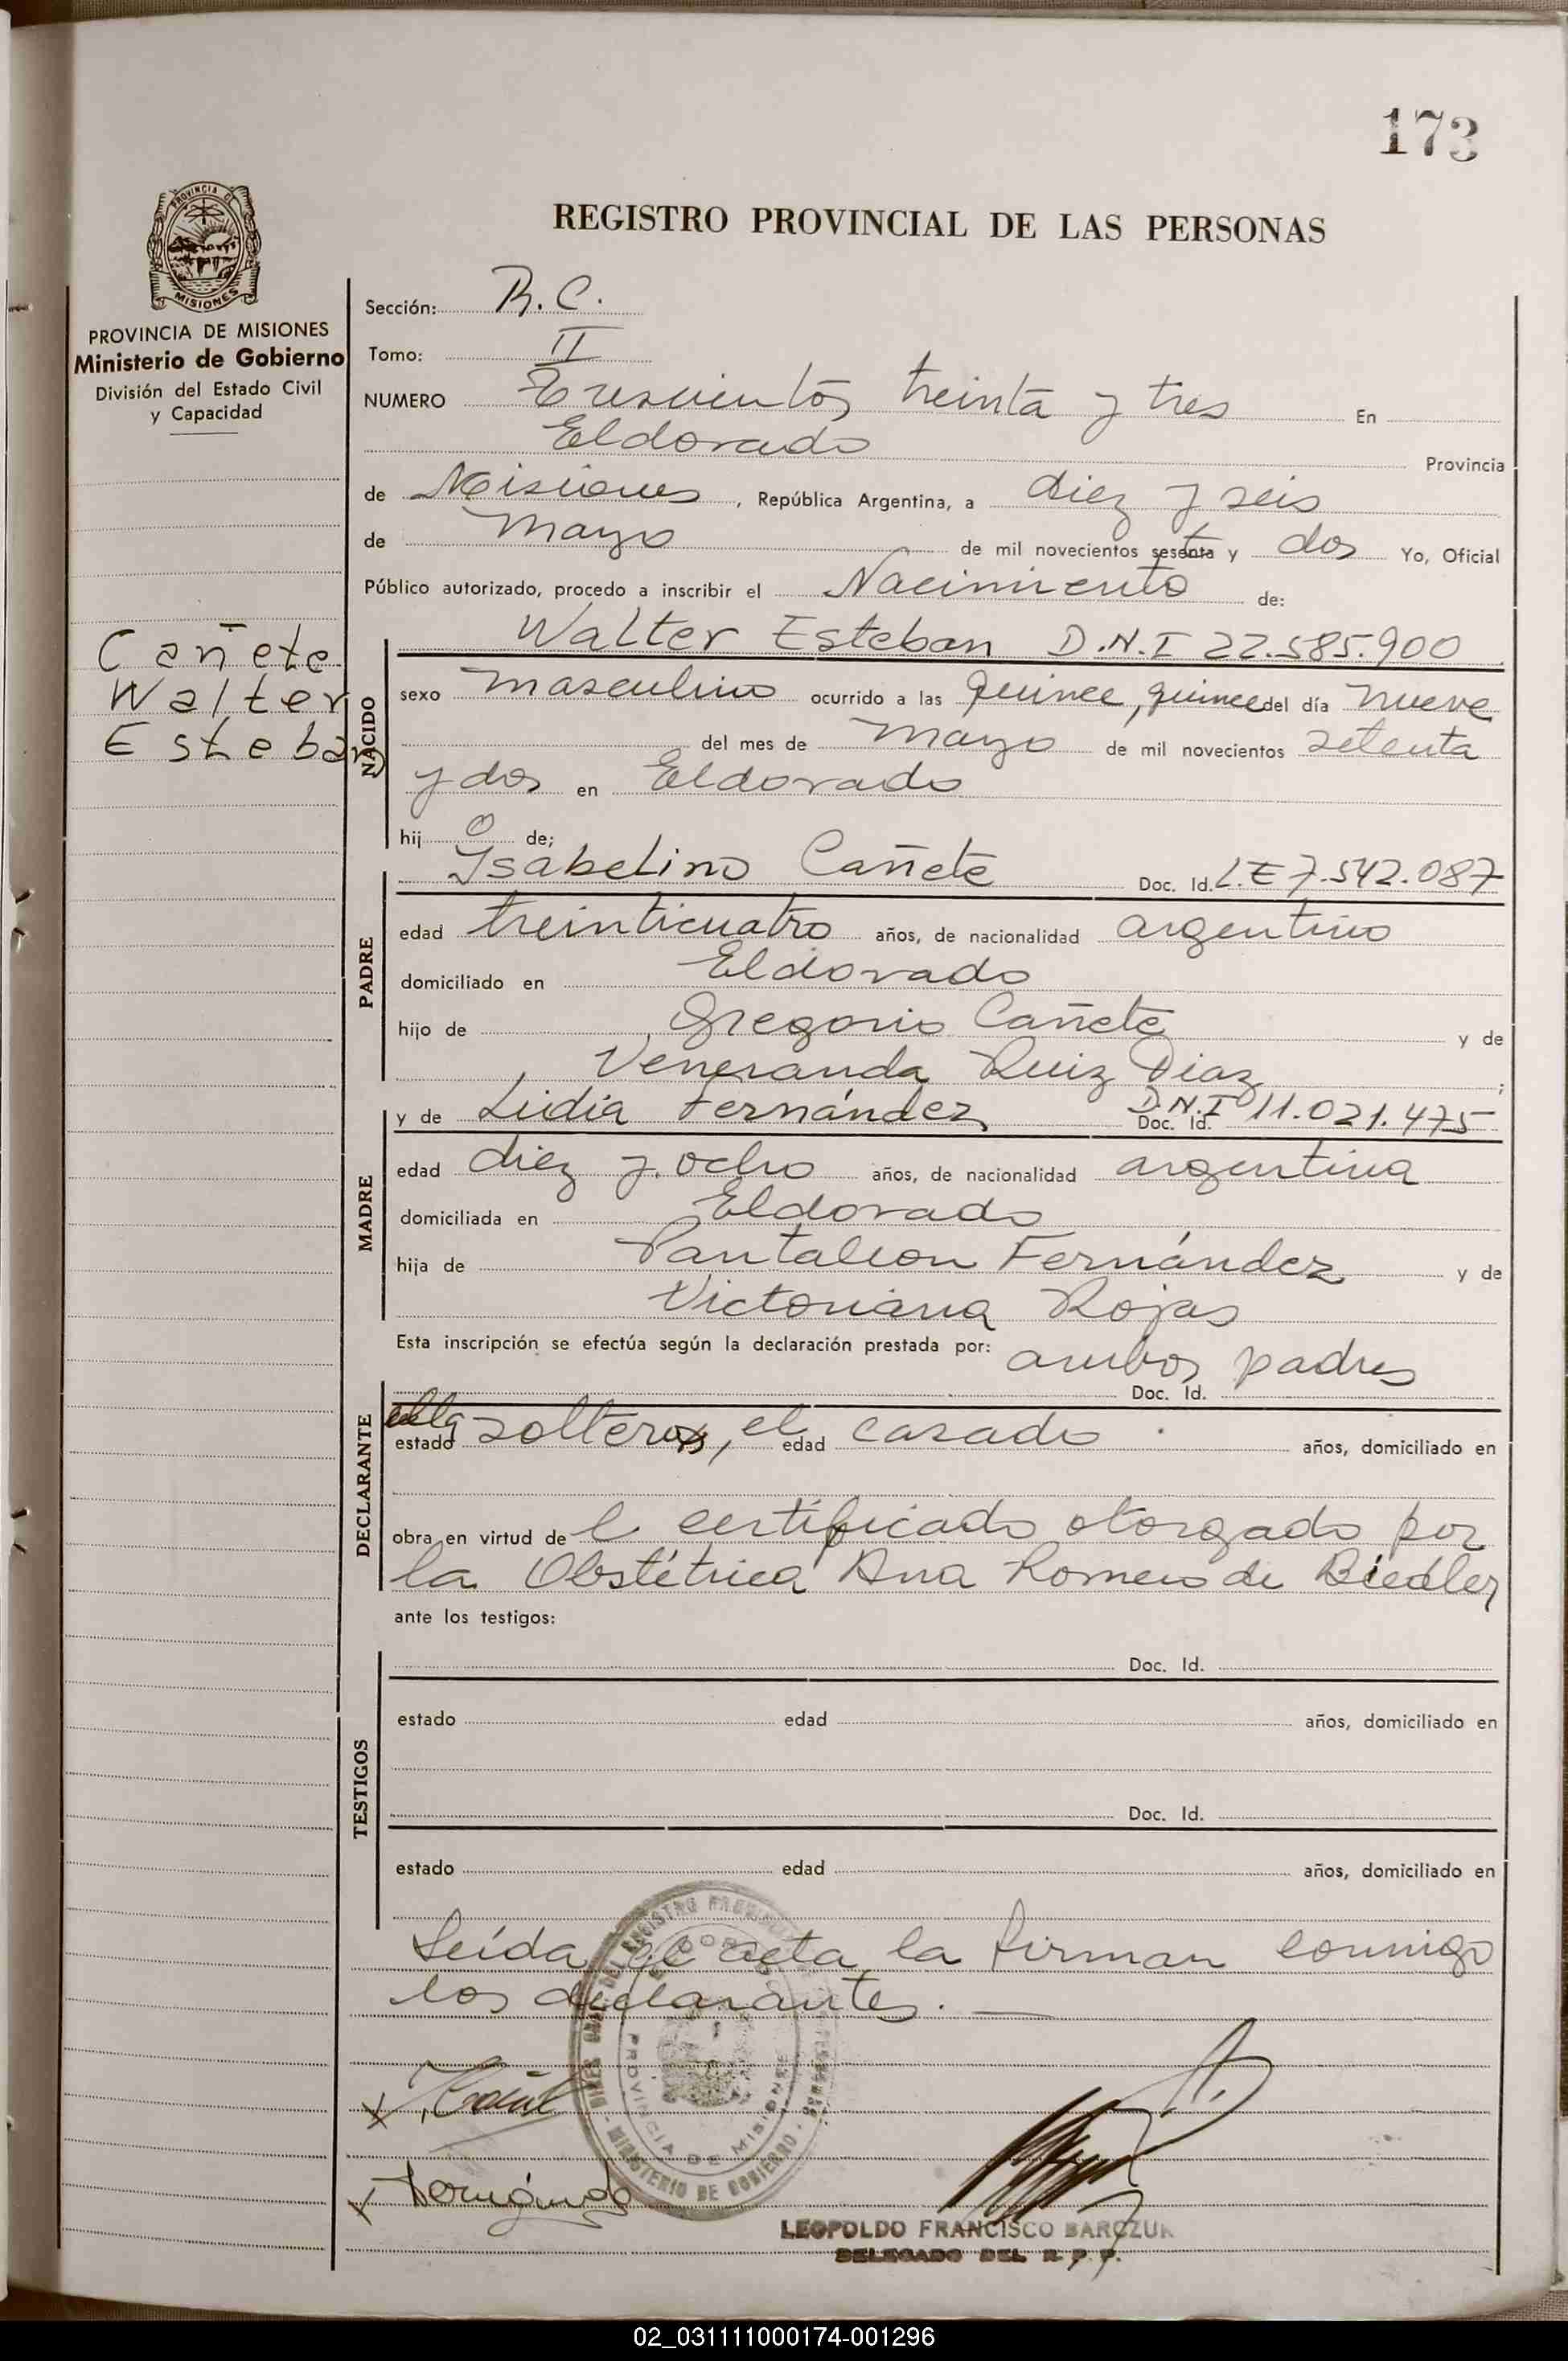 173
PROVINCIA DE
MISIONES
PROVINCIA DE MISIONES
Ministerio de Gobierno
División del Estado Civil
y Capacidad
Cañete
Walter
Esteban
REGISTRO PROVINCIAL DE LAS PERSONAS
Sección: R.C.
Tomo: II
NUMERO Trescientos treinta y tres En
Eldorado Provincia
de Misiones, República Argentina, a diez y seis
de Mayo de mil novecientos sesenta y dos Yo, Oficial
Público autorizado, procedo a inscribir el Nacimiento de:
Walter Esteban D.N.I 22.585.900
NACIDO
sexo masculino ocurrido a las quince, quince del día nueve
del mes de mayo de mil novecientos setenta
y dos en Eldorado
hijo de;
PADRE
Isabelino Cañete Doc. Id. L.E 7.542.087
edad treinticuatro años, de nacionalidad argentino
domiciliado en Eldorado
hijo de Gregorio Cañete y de
Veneranda Ruiz Diaz;
MADRE
y de Lidia Fernández Doc. Id. D.N.I 11.021.475
edad diez y ocho años, de nacionalidad argentina
domiciliada en Eldorado
hija de Pantaleon Fernández y de
Victoriana Rojas
Esta inscripción se efectúa según la declaración prestada por: ambos padres
Doc. Id.
DECLARANTE
ella
estado soltera, el edad casado años, domiciliado en
obra en virtud del certificado otorgado por
la Obstétrica Ana Romero de Biedler
ante los testigos:
TESTIGOS
Doc. Id.
estado edad años, domiciliado en
Doc. Id.
estado edad años, domiciliado en
Leída el acta, la firman conmigo
los declarantes.
PROVINCIA DE MISIONES
MINISTERIO DE GOBIERNO
LEOPOLDO FRANCISCO BARCZUK
DELEGADO DEL R.P.P.
02_031111000174-001296